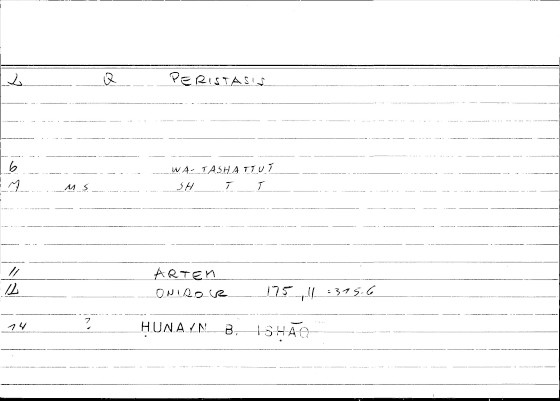 Q PERISTASIS
6 WA-TASHATTUT
M S SH T T
11 ARTEM
12 ONIROCR 175,11 = 315.6
14 ? ḤUNAYN B. ISḤĀQ